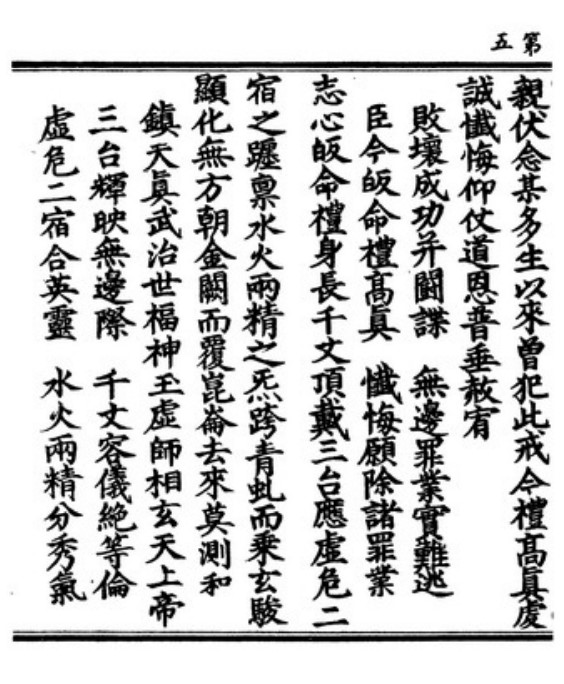 第五
親伏念某多生以來曾犯此戒今禮髙眞虔
誠懺悔仰仗道恩普垂赦宥
敗壞成功并鬪諜　無邊罪業實難逃
臣今皈命禮髙眞　懺悔願除諸罪業
志心皈命禮身長千丈頂戴三台應虛危二
宿之躔禀水火兩精之炁跨青虬而乗玄駿
顯化無方朝金闕而覆崑崙去來莫測和
鎮天眞武治世福神玉虛師相玄天上帝
三台輝映無邊際　千丈容儀絶等倫
虛危二宿合英靈　水火兩精分秀氣